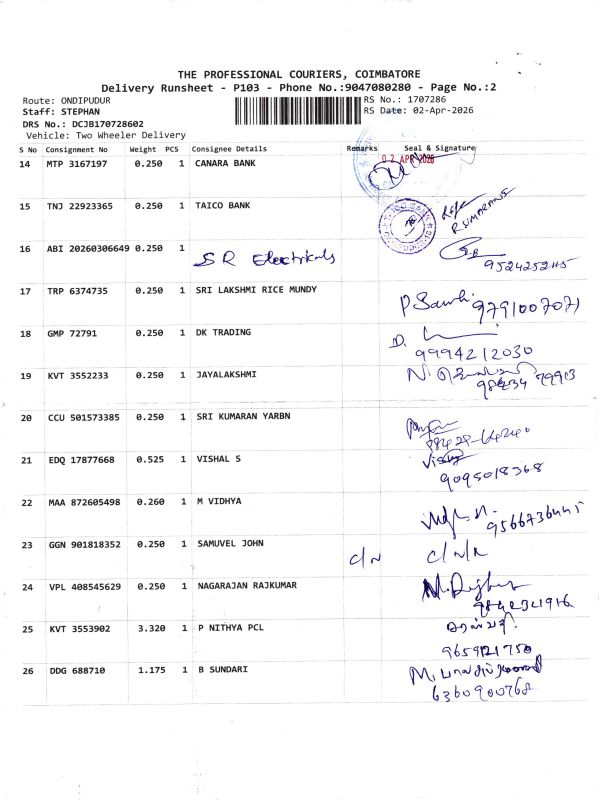 THE PROFESSIONAL COURIERS, COIMBATORE
Delivery Runsheet - P103 - Phone No.:9047080280 - Page No.:2
Route: ONDIPUDUR
Staff: STEPHAN
DRS No.: DCJB170728602
Vehicle: Two Wheeler Delivery
RS No.: 1707286
RS Date: 02-Apr-2026
S No Consignment No Weight PCS Consignee Details Remarks Seal & Signature
14 MTP 3167197 0.250 1 CANARA BANK 02 APR 2026
15 TNJ 22923365 0.250 1 TAICO BANK
16 ABI 20260306649 0.250 1 SR Electricals
17 TRP 6374735 0.250 1 SRI LAKSHMI RICE MUNDY 9791007071
18 GMP 72791 0.250 1 DK TRADING D.
9994212030
19 KVT 3552233 0.250 1 JAYALAKSHMI
20 CCU 501573385 0.250 1 SRI KUMARAN YARBN
21 EDQ 17877668 0.525 1 VISHAL S
9095018368
22 MAA 872605498 0.260 1 M VIDHYA
23 GGN 901818352 0.250 1 SAMUVEL JOHN
24 VPL 408545629 0.250 1 NAGARAJAN RAJKUMAR
25 KVT 3553902 3.320 1 P NITHYA PCL
26 DDG 688710 1.175 1 B SUNDARI
6360900768